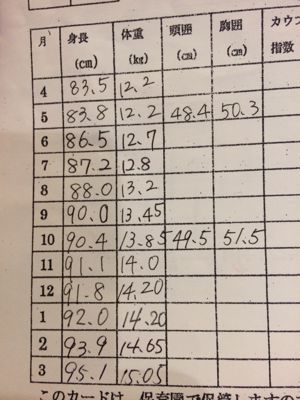 月 身長 (cm) 体重 (kg) 頭囲 (cm) 胸囲 (cm) カウプ 指数
4 83.5 12.2
5 83.8 12.2 48.4 50.3
6 86.5 12.7
7 87.2 12.8
8 88.0 13.2
9 90.0 13.45
10 90.4 13.85 49.5 51.5
11 91.1 14.0
12 91.8 14.20
1 92.0 14.20
2 93.9 14.65
3 95.1 15.05
このカードは、保育園で保管しますので